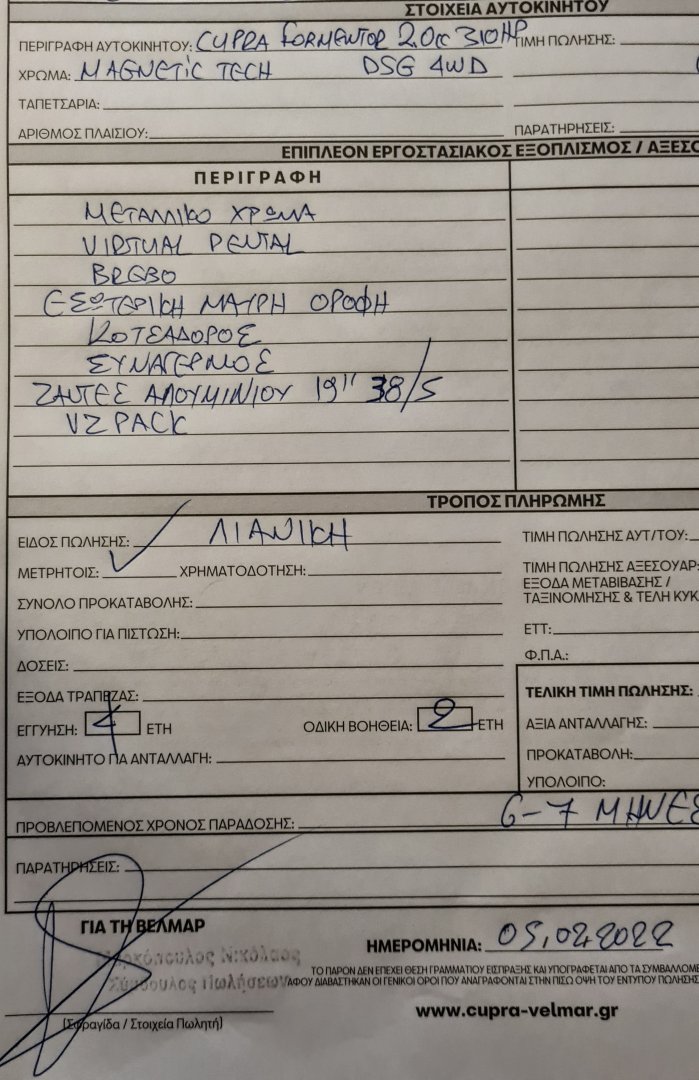 ΣΤΟΙΧΕΙΑ ΑΥΤΟΚΙΝΗΤΟΥ
ΠΕΡΙΓΡΑΦΗ ΑΥΤΟΚΙΝΗΤΟΥ: CUPRA FORMENTOR 2.0cc 310HP ΤΙΜΗ ΠΩΛΗΣΗΣ:
ΧΡΩΜΑ: MAGNETiC TECH DSG 4WD
ΤΑΠΕΤΣΑΡΙΑ:
ΑΡΙΘΜΟΣ ΠΛΑΙΣΙΟΥ: ΠΑΡΑΤΗΡΗΣΕΙΣ:
ΕΠΙΠΛΕΟΝ ΕΡΓΟΣΤΑΣΙΑΚΟΣ ΕΞΟΠΛΙΣΜΟΣ / ΑΞΕΣΟ
ΠΕΡΙΓΡΑΦΗ
ΜΕΤΑΛΛΙΚΟ ΧΡΩΜΑ
VIRTUAL PENTAL
BREBO
ΕΣΩΤΕΡΙΚΗ ΜΑΥΡΗ ΟΡΟΦΗ
ΚΟΤΣΑΔΟΡΟΣ
ΣΥΝΑΓΕΡΜΟΣ
ΖΑΝΤΕΣ ΑΛΟΥΜΙΝΙΟΥ 19'' 38/5
VZ PACK
ΤΡΟΠΟΣ ΠΛΗΡΩΜΗΣ
ΕΙΔΟΣ ΠΩΛΗΣΗΣ: ΛΙΑΝΙΚΗ ΤΙΜΗ ΠΩΛΗΣΗΣ ΑΥΤ/ΤΟΥ:
ΜΕΤΡΗΤΟΙΣ: ✓ ΧΡΗΜΑΤΟΔΟΤΗΣΗ: ΤΙΜΗ ΠΩΛΗΣΗΣ ΑΞΕΣΟΥΑΡ:
ΕΞΟΔΑ ΜΕΤΑΒΙΒΑΣΗΣ /
ΣΥΝΟΛΟ ΠΡΟΚΑΤΑΒΟΛΗΣ: ΤΑΞΙΝΟΜΗΣΗΣ & ΤΕΛΗ ΚΥΚ
ΥΠΟΛΟΙΠΟ ΓΙΑ ΠΙΣΤΩΣΗ: ΕΤΤ:
ΔΟΣΕΙΣ: Φ.Π.Α.:
ΕΞΟΔΑ ΤΡΑΠΕΖΑΣ: ΤΕΛΙΚΗ ΤΙΜΗ ΠΩΛΗΣΗΣ:
ΕΓΓΥΗΣΗ: 4 ΕΤΗ ΟΔΙΚΗ ΒΟΗΘΕΙΑ: 2 ΕΤΗ ΑΞΙΑ ΑΝΤΑΛΛΑΓΗΣ:
ΑΥΤΟΚΙΝΗΤΟ ΓΙΑ ΑΝΤΑΛΛΑΓΗ: ΠΡΟΚΑΤΑΒΟΛΗ:
ΥΠΟΛΟΙΠΟ:
ΠΡΟΒΛΕΠΟΜΕΝΟΣ ΧΡΟΝΟΣ ΠΑΡΑΔΟΣΗΣ: 6-7 ΜΗΝΕΣ
ΠΑΡΑΤΗΡΗΣΕΙΣ:
ΓΙΑ ΤΗ ΒΕΛΜΑΡ
ΗΜΕΡΟΜΗΝΙΑ: 05.02.2022
Νικόλαος
Πωλήσεων
ΤΟ ΠΑΡΟΝ ΔΕΝ ΕΠΕΧΕΙ ΘΕΣΗ ΓΡΑΜΜΑΤΙΟΥ ΕΙΣΠΡΑΞΗΣ ΚΑΙ ΥΠΟΓΡΑΦΕΤΑΙ ΑΠΟ ΤΑ ΣΥΜΒΑΛΛΟΜΕ
ΑΦΟΥ ΔΙΑΒΑΣΤΗΚΑΝ ΟΙ ΓΕΝΙΚΟΙ ΟΡΟΙ ΠΟΥ ΑΝΑΓΡΑΦΟΝΤΑΙ ΣΤΗΝ ΠΙΣΩ ΟΨΗ ΤΟΥ ΕΝΤΥΠΟΥ ΠΩΛΗΣΗΣ
www.cupra-velmar.gr
(Σφραγίδα / Στοιχεία Πωλητή)